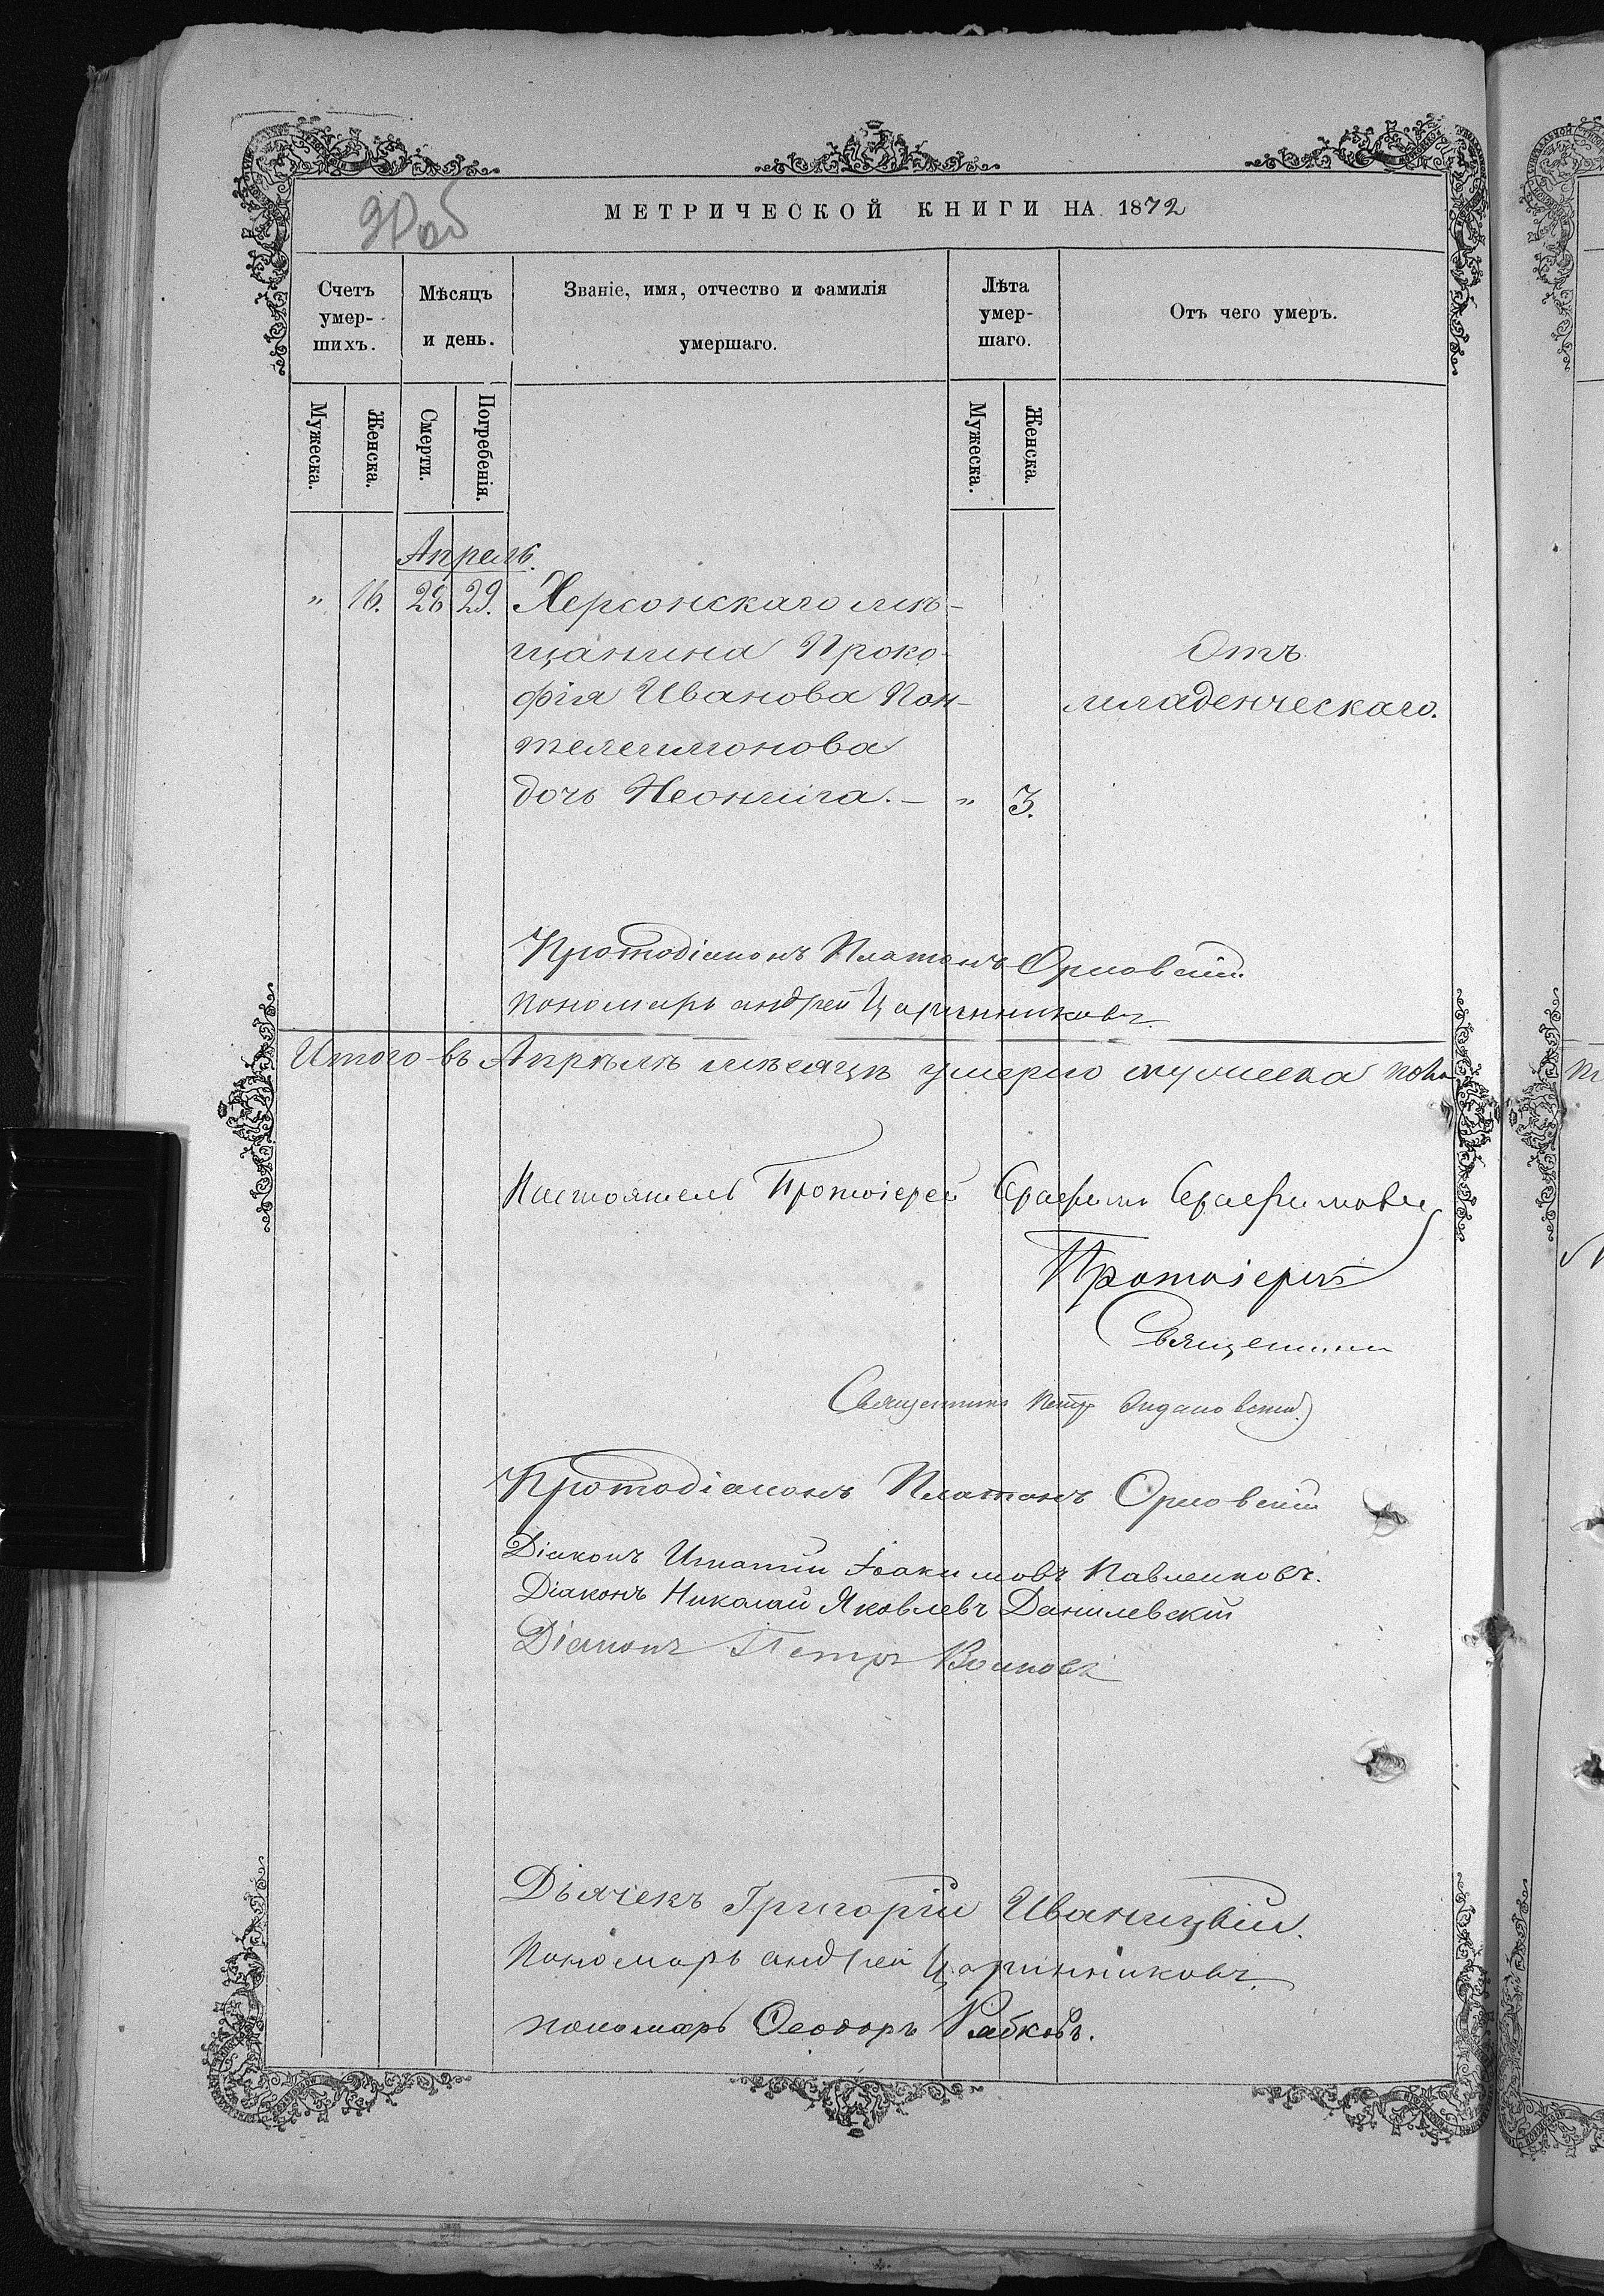 90об
МЕТРИЧЕСКОЙ КНИГИ НА 1872
Счетъ умер-шихъ.
Мѣсяцъ и день.
Званіе, имя, отчество и фамилія умершаго.
Лѣта умер-шаго.
Отъ чего умеръ.
Мужеска.
Женска.
Смерти.
Погребенія.
Мужеска.
Женска.
Апрель.
" 16. 28 29. Херсонскаго мѣ-
щанина Проко-
фія Иванова Пон-
телеимонова
дочь Неонила. — " 3.
Отъ
младенческаго.
Протодіаконъ Платонъ Орловскій.
пономарь андрей Царинниковъ.
Итого въ Апрѣлѣ мѣсяцѣ умерло мужеска пола
Настоятель Протоіерей Серафимъ Серафимовъ
Протоіерей
Священник
Священникъ Петръ
Протодіаконъ Платонъ Орловскій
Діаконъ Игнатій Іоакимовъ Павленковъ.
Діаконъ Николай Яковлевъ Данилевскій
Діаконъ Петръ Волковъ
Дьячекъ Григорій Иваницкій.
Пономарь андрей Царинниковъ.
пономарь Ѳеодоръ Рябковъ.